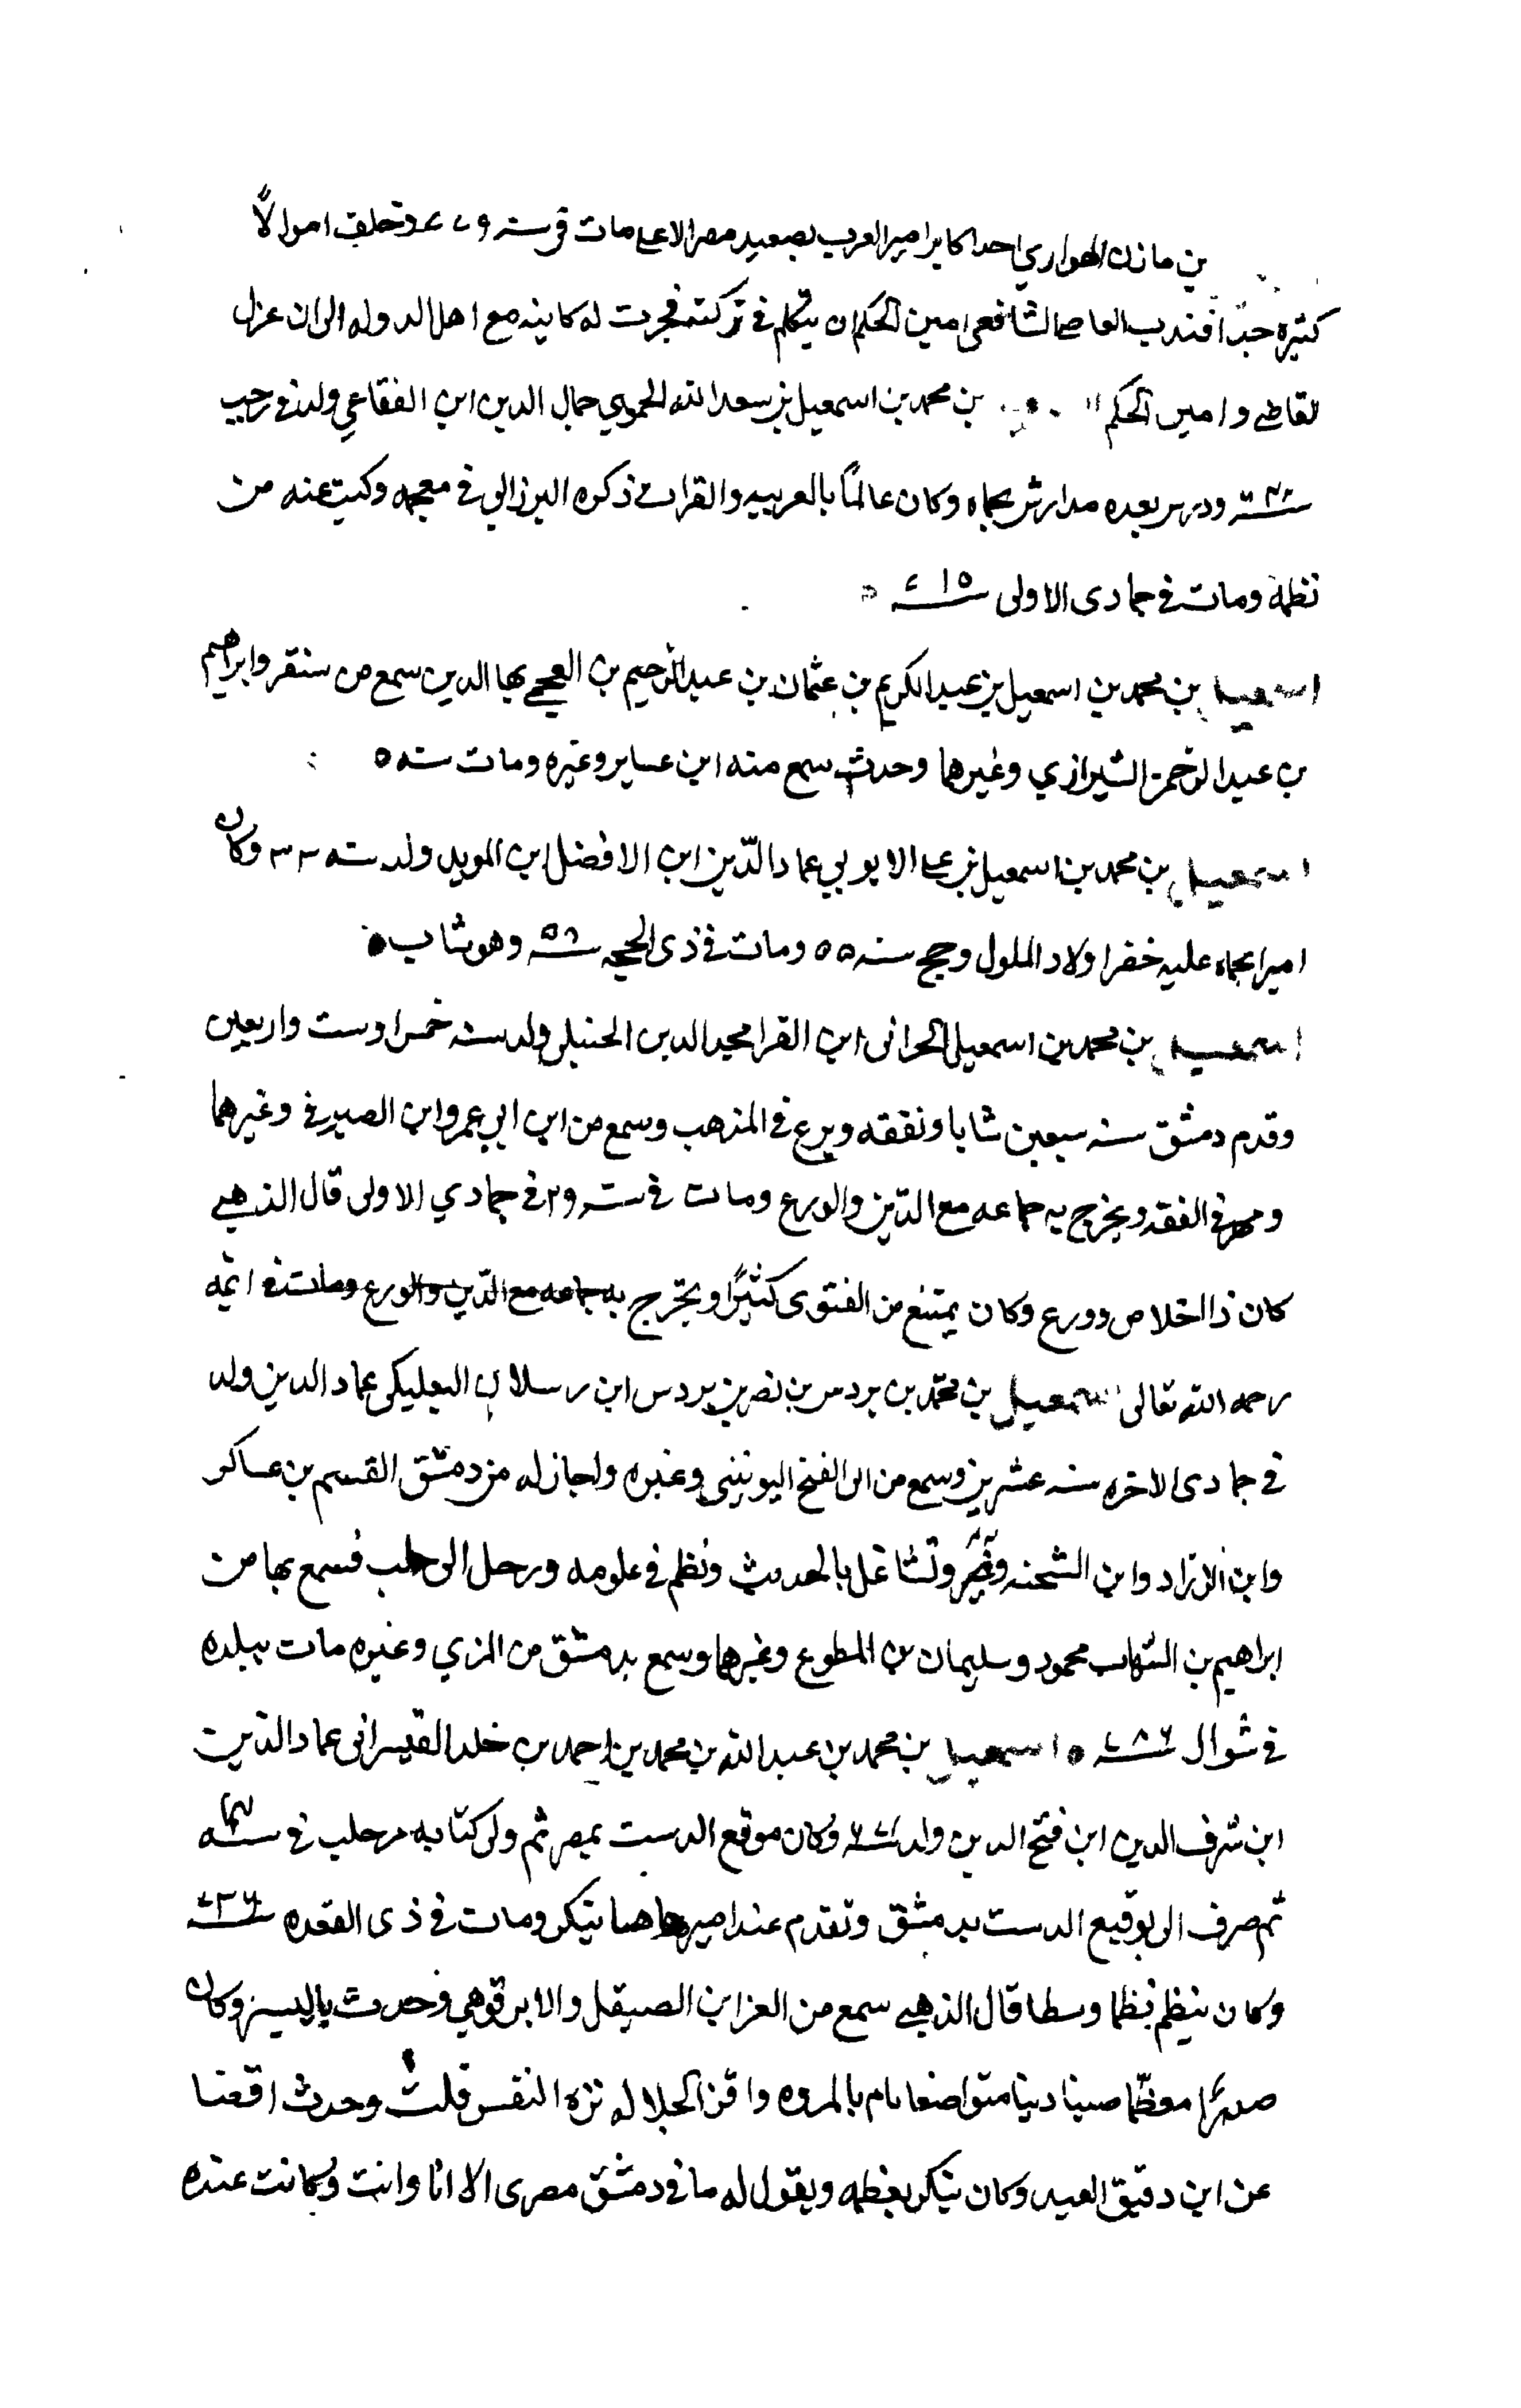 بن مازن الهواري احد اكابر امير العرب بصعيد مصر الاعلى مات في سنه ٧٧٩ وخلف اموالاً
كثيره جدا فندب القاضي الشافعي امين الحكم ان يتكلم في تركته فجرت له كاينه مع اهل الدوله الى ان عزل
القاضي وامين الحكم بن محمد بن اسمعيل بن سعد الله الحموي جمال الدين ابن الفقاعي ولد في رجب
ودرس بعده مدارس بحماه وكان عالمًا بالعربيه والقرات ذكره البرزالي في معجمه وكتب عنه من
نظمه ومات في جمادى الاولى سنة ٧١٥
اسمعيل بن محمد بن اسمعيل بن عبد الكريم بن عثمان بن عبد الرحيم بن العجمي بها الدين سمع من سنقر وابراهيم
بن عبد الرحمن الشيرازي وغيرهما وحدث سمع منه ابن عساير وغيره ومات سنه
اسمعيل بن محمد بن اسمعيل بن علي الايوبي عماد الدّين ابن الافضل ابن المويد ولد سنه ٣٣ وكان
اميرا بحماه عليه خفر اولاد الملوك وحج سنه ٥٥ ومات في ذى الحجه سنة ٥٦ وهو شاب
اسمعيل بن محمد بن اسمعيل الحراني ابن الفرا مجد الدين الحنبلي ولد سنه خمس اوست واربعين
وقدم دمشق سنه سبعين شابا وتفقه وبرع في المذهب وسمع من ابن ابي عمر وابن الصيرفي وغيرهما
ومهر في الفقه وتخرج به جماعه مع الدّين والورع ومات في سنه ٧٢٩ في جمادي الاولى قال الذهبي
كان ذا اخلاص وورع وكان يمتنع من الفتوى كثيرًا وتخرج به جماعه مع الدّين والورع ومات في ايمه
رحمه الله تعالى اسمعيل بن محمّد بن بردس بن نصر بن بردس ابن رسلان البعليكى عماد الدين ولد
في جمادى الاخره سنه عشرين وسمع من ابى الفتح اليونيني وغيره واجاز له من دمشق القسم بن عساكر
وابن الزراد وابن الشحنه وتشاغل بالحديث ونظم في علومه ورحل الى حلب فسمع بها من
ابراهيم بن الشهاب محمود وسليمان بن المطوع وغيرهما وسمع بدمشق من المزي وغيره مات ببلده
في شوال سنة ٧٨٦ اسمعيل بن محمد بن عبد الله بن محمد بن احمد بن خلد القيسراني عماد الدّين
ابن شرف الدين ابن فتح الدين ولد سنة ٦٧١ وكان موقع الدست بمصر ثم ولى كتابه سر حلب في سنه
ثم صرف الى توقيع الدست بدمشق وتقدم عند اميرها تنكز ومات في ذى القعده سنة ٧٣٦
وكان ينظم نظما وسطا قال الذهبي سمع من العز ابن الصيقل والابرقوهي وحدث باليسير وكان
صدرًا معظّما صينا دينا متواضعا تام بالمروه وافر الجلاله نزه النفس قلت وحدث
عن ابن دقيق العيد وكان تنكز يعظمه ويقول له ما في دمشق مصرى الا انا وانت وكانت عنده